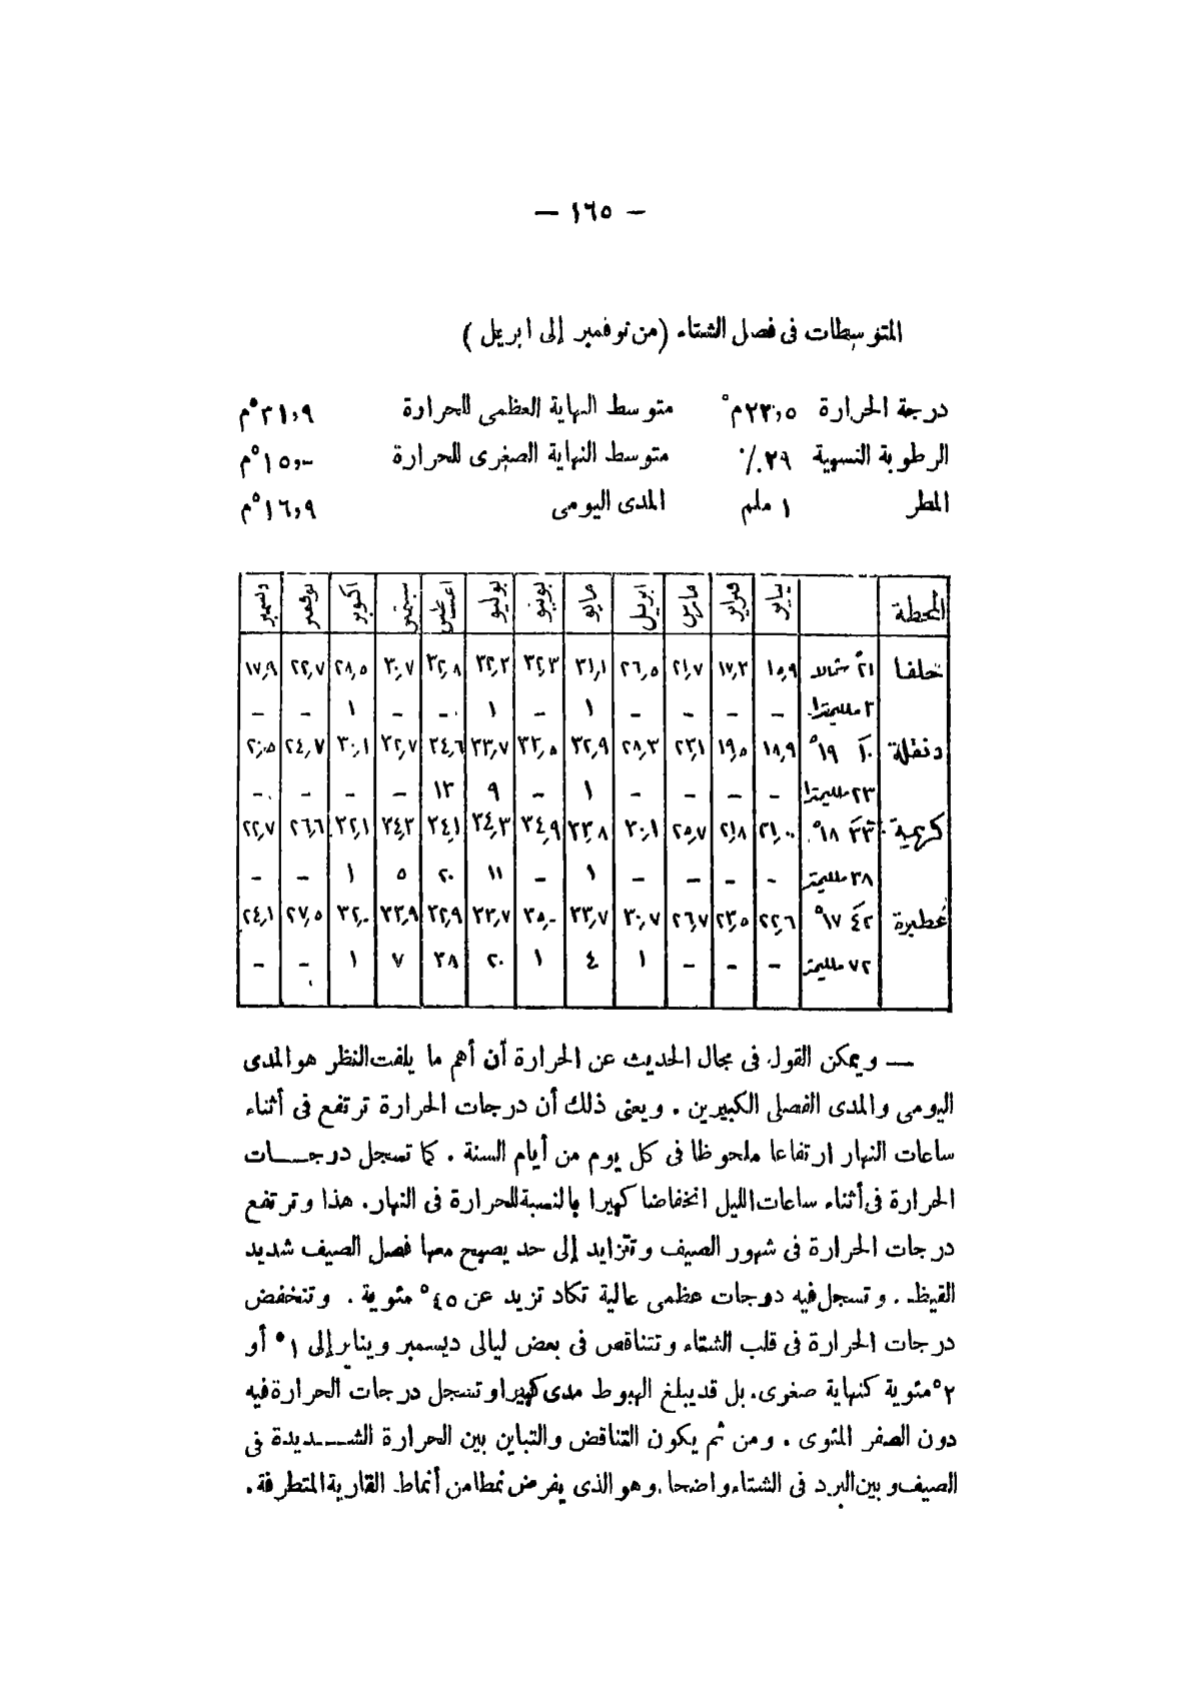 — ١٦٥ —
المتوسطات فى فصل الشتاء (من نوفمبر إلى ابريل)
درجة الحرارة ٢٣,٥م° متوسط النهاية العظمى للحرارة ٣١,٩°م
الرطوبة النسبية ٢٩٪ متوسط النهاية الصغرى للحرارة ١٥,-°م
المطر ١ ملم المدى اليومى ١٦,٩°م
المحطة يناير فبراير مارس ابريل مايو يونيو يوليو اغسطس سبتمبر اكتوبر نوفمبر ديسمبر
حلفا ٢١° شمالا ١٥,٩ ١٧,٣ ٢١,٧ ٢٦,٥ ٣١,١ ٣٢,٣ ٣٢,٢ ٣٢,٨ ٣٠,٧ ٢٨,٥ ٢٢,٧ ١٧,٩
٣ ملليمترا - - - - ١ - ١ - - ١ - -
دنقلة ١٠ ١٩° ١٨,٩ ١٩,٥ ٢٣,١ ٢٨,٣ ٣٢,٩ ٣٣,٥ ٣٣,٧ ٣٤,٦ ٣٢,٧ ٣٠,١ ٢٤,٧ ٢٠,٥
٢٣ ملليمترا - - - - ١ - ٩ ١٣ - - - -
كريمة ٣٣ ١٨° ٢١,٠٠ ٢١,٨ ٢٥,٧ ٣٠,١ ٣٣,٨ ٣٤,٩ ٣٤,٣ ٣٤,١ ٣٤,٣ ٣٢,١ ٢٦,٦ ٢٢,٧
٣٨ ملليمتر - - - - ١ - ١١ ٢٠ ٥ ١ - -
عطبرة ٤٢ ١٧° ٢٢,٦ ٢٣,٥ ٢٦,٧ ٣٠,٧ ٣٣,٧ ٣٥,- ٣٣,٧ ٣٢,٩ ٣٣,٩ ٣٢,٠ ٢٧,٥ ٢٤,١
٧٢ ملليمتر - - - ١ ٤ ١ ٢٠ ٣٨ ٧ ١ - -
— ويمكن القول فى مجال الحديث عن الحرارة أن أهم ما يلفت النظر هو المدى
اليومى والمدى الفصلى الكبيرين . ويعنى ذلك أن درجات الحرارة ترتفع فى أثناء
ساعات النهار ارتفاعا ملحوظا فى كل يوم من أيام السنة . كما تسجل درجـــات
الحرارة فى أثناء ساعات الليل انخفاضا كبيرا بالنسبة للحرارة فى النهار. هذا وترتفع
درجات الحرارة فى شهور الصيف وتتزايد إلى حد يصبح معها فصل الصيف شديد
القيظ . وتسجل فيه درجات عظمى عالية تكاد تزيد عن ٤٥° مئوية . وتنخفض
درجات الحرارة فى قلب الشتاء وتتناقص فى بعض ليالى ديسمبر ويناير إلى ١° أو
٢° مئوية كنهاية صغرى. بل قد يبلغ الهبوط مدى كبيرا وتسجل درجات الحرارة فيه
دون الصفر المئوى . ومن ثم يكون التناقض والتباين بين الحرارة الشـــديدة فى
الصيف وبين البرد فى الشتاء واضحا. وهو الذى يفرض نمطا من أنماط القارية المتطرفة .